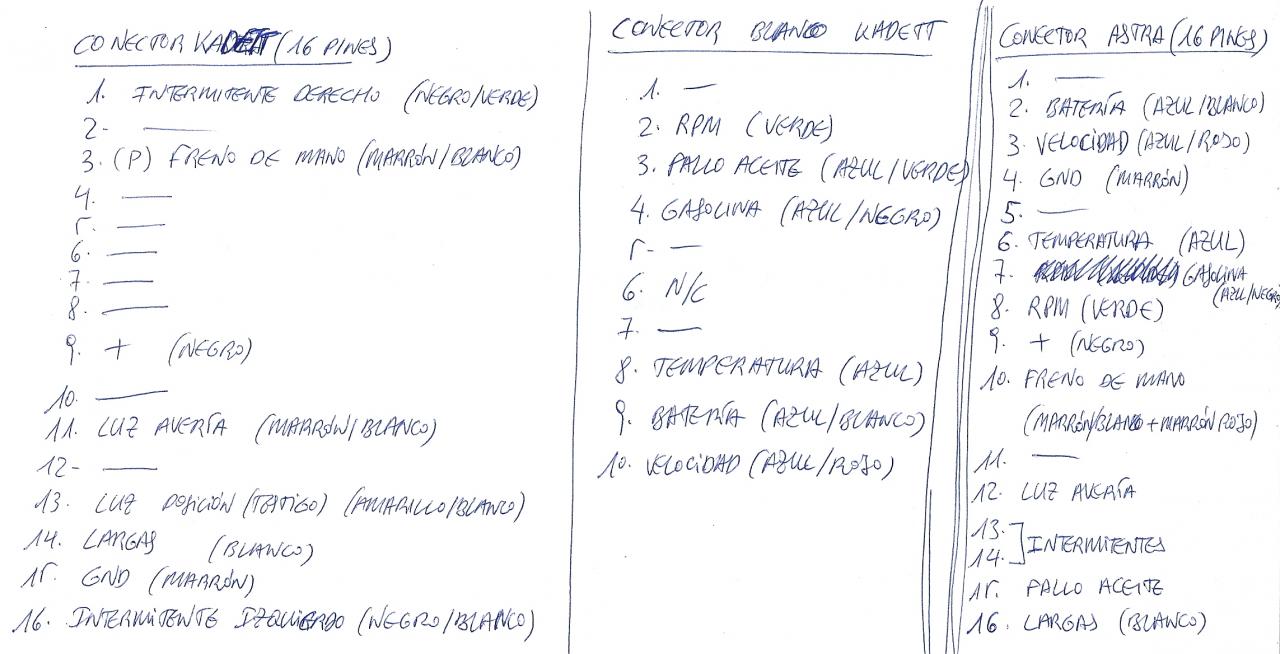 CONECTOR KADETT (16 PINES)
1. INTERMITENTE DERECHO (NEGRO/VERDE)
2- —
3. (P) FRENO DE MANO (MARRÓN/BLANCO)
4. —
5. —
6. —
7. —
8. —
9. + (NEGRO)
10. —
11. LUZ AVERÍA (MARRÓN/BLANCO)
12- —
13. LUZ POSICIÓN (TESTIGO) (AMARILLO/BLANCO)
14. LARGAS (BLANCO)
15. GND (MARRÓN)
16. INTERMITENTE IZQUIERDO (NEGRO/BLANCO)
CONECTOR BLANCO KADETT
1. —
2. RPM (VERDE)
3. FALLO ACEITE (AZUL/VERDE)
4. GASOLINA (AZUL/NEGRO)
5- —
6. N/C
7. —
8. TEMPERATURA (AZUL)
9. BATERÍA (AZUL/BLANCO)
10. VELOCIDAD (AZUL/ROJO)
CONECTOR ASTRA (16 PINES)
1. —
2. BATERÍA (AZUL/BLANCO)
3. VELOCIDAD (AZUL/ROJO)
4. GND (MARRÓN)
5. —
6. TEMPERATURA (AZUL)
7. GASOLINA
(AZUL/NEGRO)
8. RPM (VERDE)
9. + (NEGRO)
10. FRENO DE MANO
(MARRÓN/BLANCO + MARRÓN ROJO)
11. —
12. LUZ AVERÍA
13.
14. ] INTERMITENTES
15. FALLO ACEITE
16. LARGAS (BLANCO)